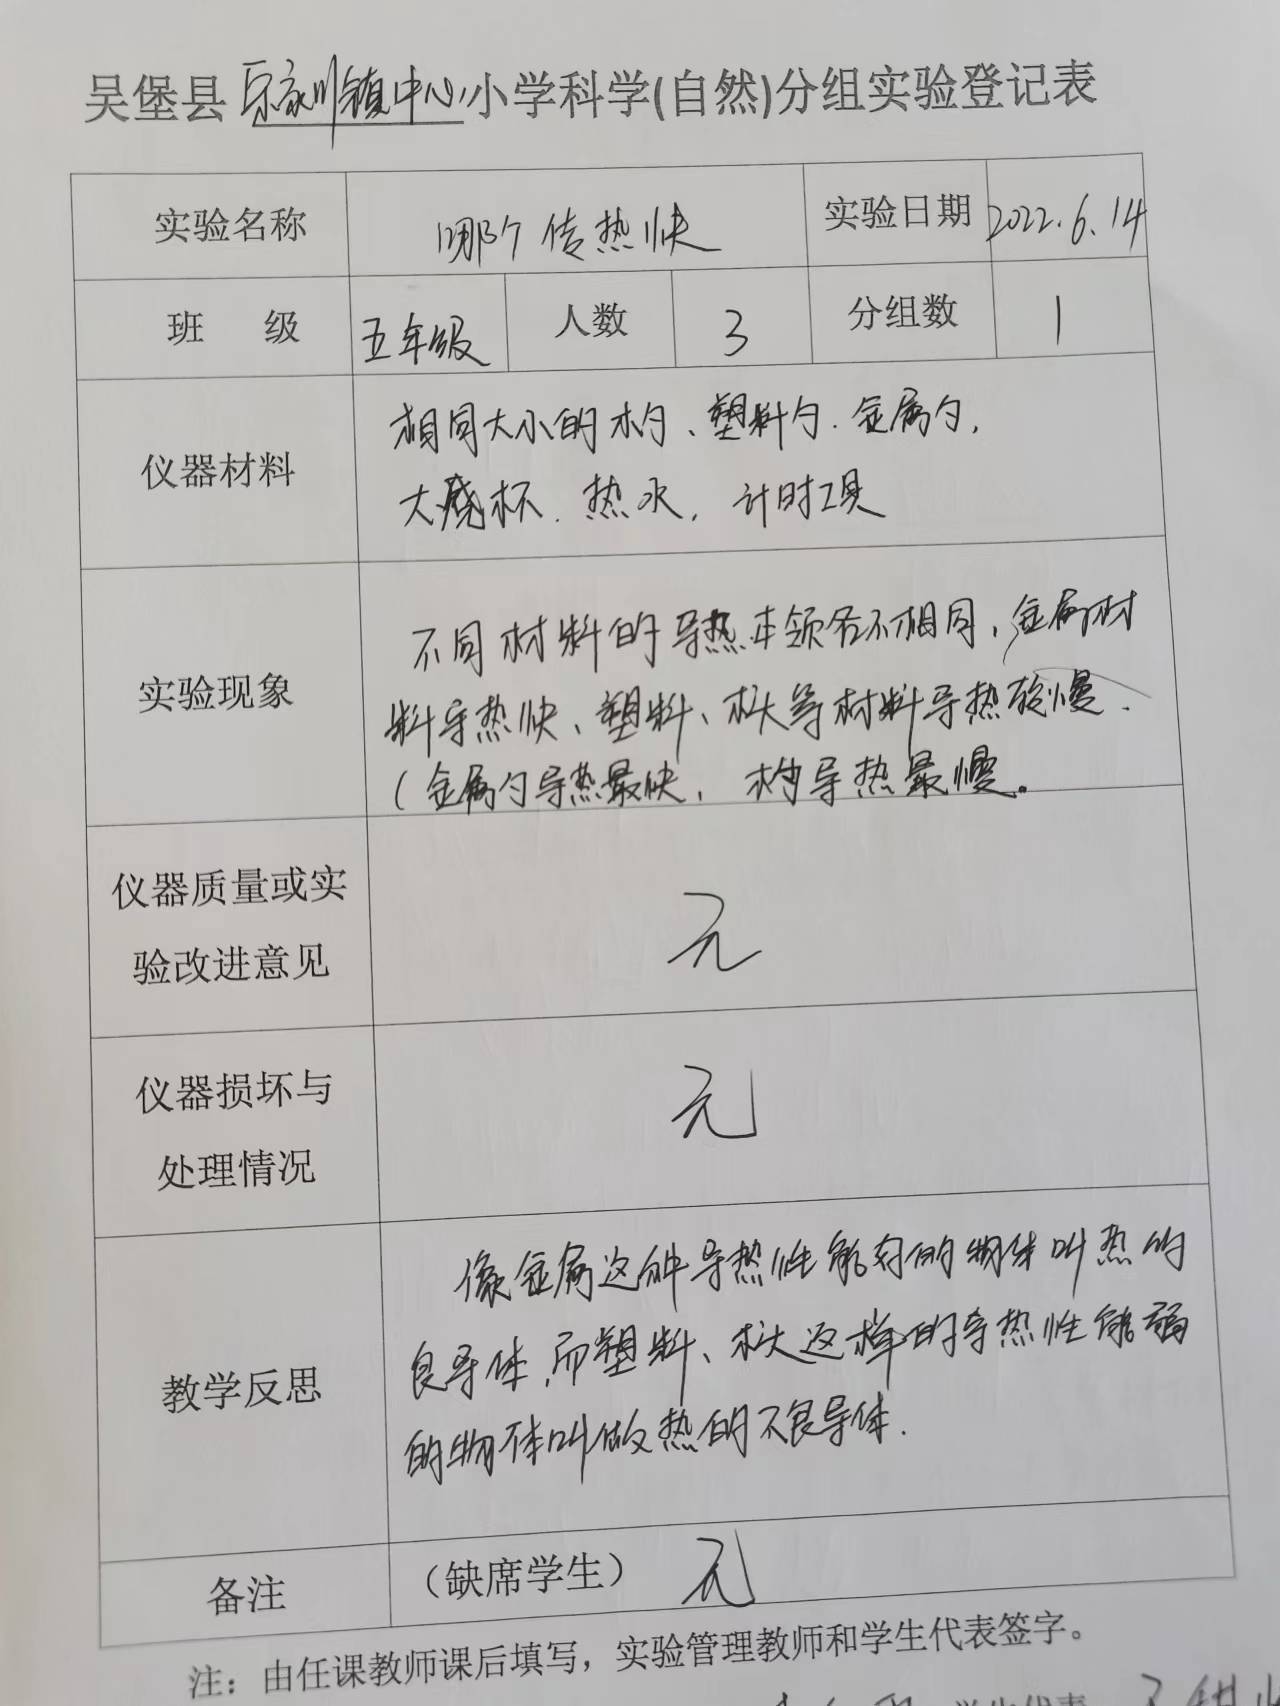 吴堡县寇家川镇中心小学科学(自然)分组实验登记表
实验名称 哪个传热快 实验日期 2022.6.14
班 级 五年级 人数 3 分组数 1
仪器材料
相同大小的木勺、塑料勺.金属勺,
大烧杯.热水,计时工具
实验现象
不同材料的导热本领各不相同,金属材
料导热快、塑料、木头等材料导热较慢.
(金属勺导热最快, 木勺导热最慢。
仪器质量或实
验改进意见
无
仪器损坏与
处理情况
无
教学反思
像金属这种导热性能好的物体叫热的
良导体,而塑料、木头这样的导热性能弱
的物体叫做热的不良导体.
备注 (缺席学生) 无
注:由任课教师课后填写,实验管理教师和学生代表签字。